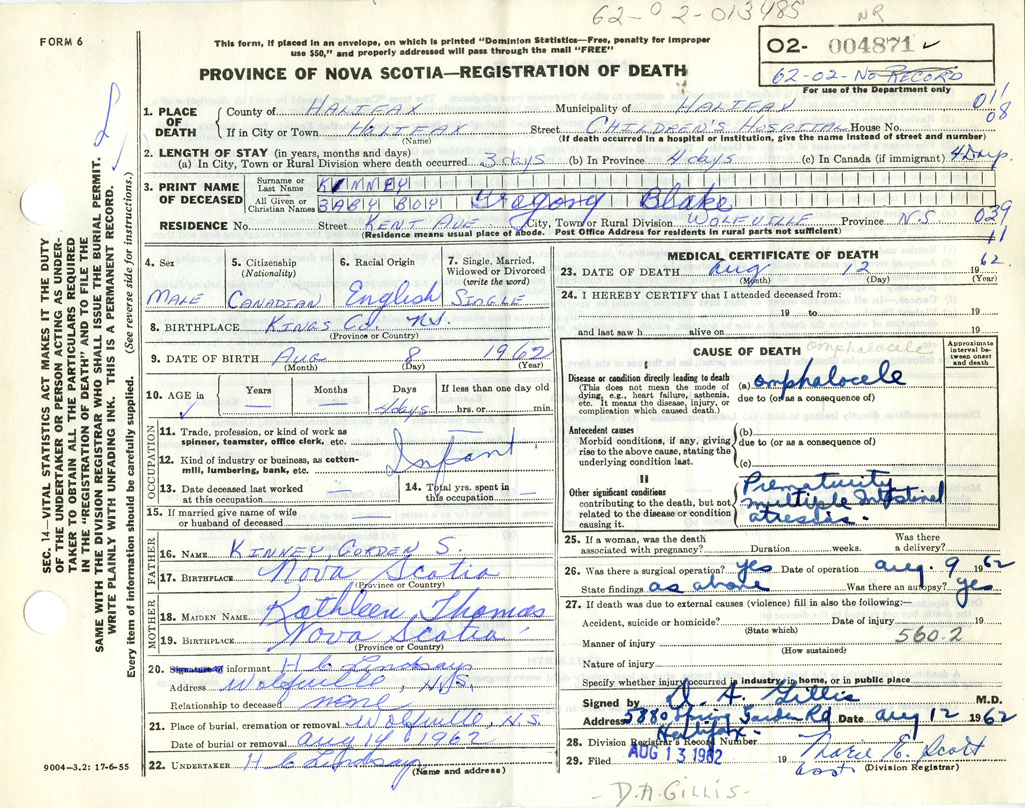 62-02-013485 NR
FORM 6
This form, if placed in an envelope, on which is printed "Dominion Statistics—Free, penalty for improper
use $50," and properly addressed will pass through the mail "FREE"
02- 004871 ✓
62-02-No RECORD
For use of the Department only
PROVINCE OF NOVA SCOTIA—REGISTRATION OF DEATH
SEC. 14—VITAL STATISTICS ACT MAKES IT THE DUTY
OF THE UNDERTAKER OR PERSON ACTING AS UNDER-
TAKER TO OBTAIN ALL THE PARTICULARS REQUIRED
IN THE "REGISTRATION OF DEATH" AND TO FILE THE
SAME WITH THE DIVISION REGISTRAR WHO SHALL ISSUE THE BURIAL PERMIT.
WRITE PLAINLY WITH UNFADING INK. THIS IS A PERMANENT RECORD.
Every item of information should be carefully supplied. (See reverse side for instructions.)
1. PLACE OF DEATH County of HALIFAX Municipality of HALIFAX 011
If in City or Town HALIFAX Street CHILDREN'S HOSPITAL House No. 08
(Name) (If death occurred in hospital or institution, give the name instead of street and number)
2. LENGTH OF STAY (in years, months and days)
(a) In City, Town or Rural Division where death occurred 3 days (b) In Province 4 days (c) In Canada (if immigrant) 4 Days
3. PRINT NAME OF DECEASED Surname or Last Name KINNEY
All Given or Christian Names BABY BOY Gregory Blake
RESIDENCE No. Street KENT AVE City, Town or Rural Division WOLFVILLE Province N.S. 029
(Residence means usual place of abode. Post Office Address for residents in rural parts not sufficient) 11
4. Sex 5. Citizenship (Nationality) 6. Racial Origin 7. Single, Married, Widowed or Divorced (write the word)
MALE CANADIAN English SINGLE
8. BIRTHPLACE KINGS CO. N.S.
(Province or Country)
9. DATE OF BIRTH AUG 8 1962
(Month) (Day) (Year)
10. AGE in ✓ Years — Months — Days 4 days If less than one day old hrs. or min.
OCCUPATION
11. Trade, profession, or kind of work as spinner, teamster, office clerk, etc.
12. Kind of industry or business, as cotton-mill, lumbering, bank, etc. Infant
13. Date deceased last worked at this occupation — 14. Total yrs. spent in this occupation —
15. If married give name of wife or husband of deceased —
FATHER
16. NAME KINNEY GORDEN S.
17. BIRTHPLACE Nova Scotia
(Province or Country)
MOTHER
18. MAIDEN NAME Kathleen Thomas
19. BIRTHPLACE Nova Scotia
(Province or Country)
20. Signature of informant H C Lindsay
Address Wolfville, N.S.
Relationship to deceased none
21. Place of burial, cremation or removal Wolfville, N.S.
Date of burial or removal aug 14 1962
22. UNDERTAKER H C Lindsay
(Name and address)
9004—3.2: 17-6-55
MEDICAL CERTIFICATE OF DEATH
23. DATE OF DEATH Aug 12 1962.
(Month) (Day) (Year)
24. I HEREBY CERTIFY that I attended deceased from:
19 to 19
and last saw h alive on 19
CAUSE OF DEATH omphalocele
Approximate interval between onset and death
I
Disease or condition directly leading to death
(This does not mean the mode of dying, e.g., heart failure, asthenia, etc. It means the disease, injury, or complication which caused death.)
(a) omphalocele
due to (or as a consequence of)
Antecedent causes
Morbid conditions, if any, giving rise to the above cause, stating the underlying condition last.
(b)
due to (or as a consequence of)
(c)
II
Other significant conditions
contributing to the death, but not related to the disease or condition causing it.
Prematurity
multiple Intestinal
atresias.
25. If a woman, was the death associated with pregnancy? Duration weeks. Was there a delivery?
26. Was there a surgical operation? yes Date of operation aug. 9 1962
State findings as above Was there an autopsy? yes
27. If death was due to external causes (violence) fill in also the following:—
Accident, suicide or homicide? Date of injury 19
(State which)
Manner of injury 560.2
(How sustained)
Nature of injury
Specify whether injury occurred in industry, in home, or in public place
Signed by D. A. Gillis M.D.
Address 5880 Spring Garden Rd Date aug 12 1962
Halifax.
28. Division Registrar's Record Number
29. Filed AUG 13 1962 19 E. Scott
asst. (Division Registrar)
- D.A. GILLIS -